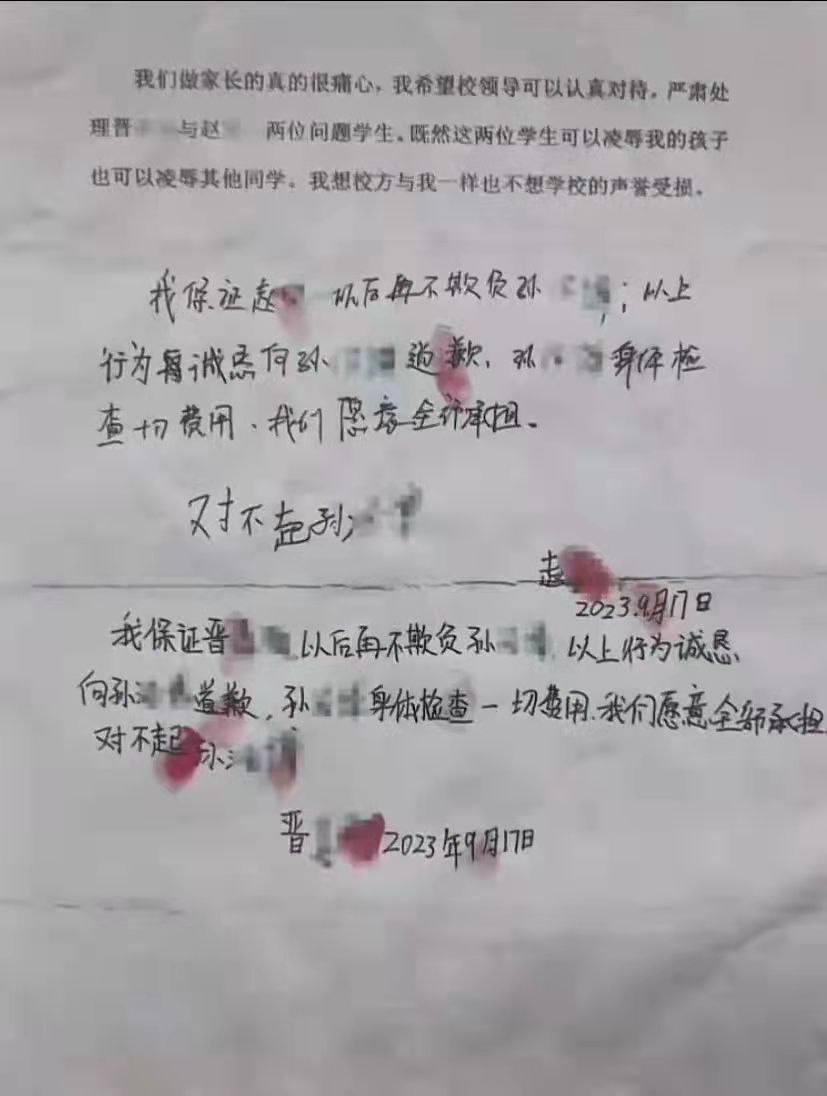 我们做家长的真的很痛心，我希望校领导可以认真对待，严肃处
理晋 与赵 两位问题学生。既然这两位学生可以凌辱我的孩子
也可以凌辱其他同学。我想校方与我一样也不想学校的声誉受损。
我保证赵 以后再不欺负孙 ；以上
行为 诚恳向孙 道歉，孙 身体检
查一切费用、我们愿意全部承担。
对不起孙
赵
2023.9月17日
我保证晋 以后再不欺负孙 以上行为诚恳
向孙 道歉，孙 身体检查一切费用、我们愿意全部承担
对不起孙
晋 2023年9月17日